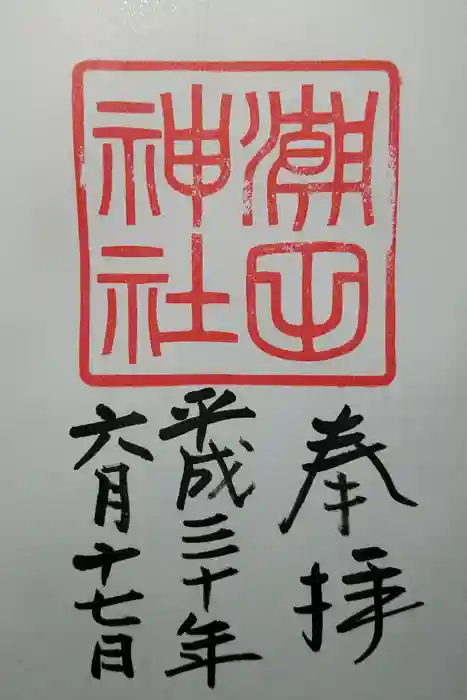 潮田
神社
奉拝
平成三十年
六月十七日